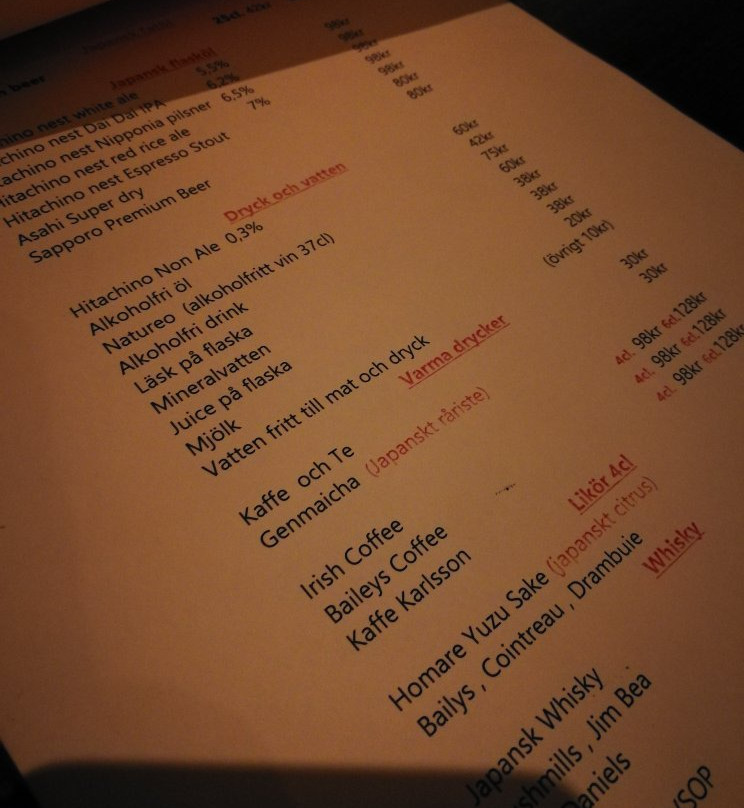 25cl. 42kr
beer
Japansk flasköl
nest white ale 5.5% 98kr
nest Dai Dai IPA 6,2% 98kr
Hitachino nest Nipponia pilsner 6,5% 98kr
Hitachino nest red rice ale 7% 98kr
Hitachino nest Espresso Stout 98kr
Asahi Super dry 80kr
Sapporo Premium Beer 80kr
Dryck och vatten
Hitachino Non Ale 0,3% 60kr
Alkoholfri öl 42kr
Natureo (alkoholfritt vin 37cl) 75kr
Alkoholfri drink 60kr
Läsk på flaska 38kr
Mineralvatten 38kr
Juice på flaska 38kr
Mjölk 20kr
Vatten fritt till mat och dryck (övrigt 10kr)
Varma drycker
Kaffe och Te 30kr
Genmaicha (Japanskt råriste) 30kr
Irish Coffee 4cl. 98kr 6cl.128kr
Baileys Coffee 4cl. 98kr 6cl.128kr
Kaffe Karlsson 4cl. 98kr 6cl.128kr
Likör 4cl
Homare Yuzu Sake (japanskt citrus)
Bailys , Cointreau , Drambuie
Whisky
Japansk Whisky
shmills , Jim Bea
aniels
SOP